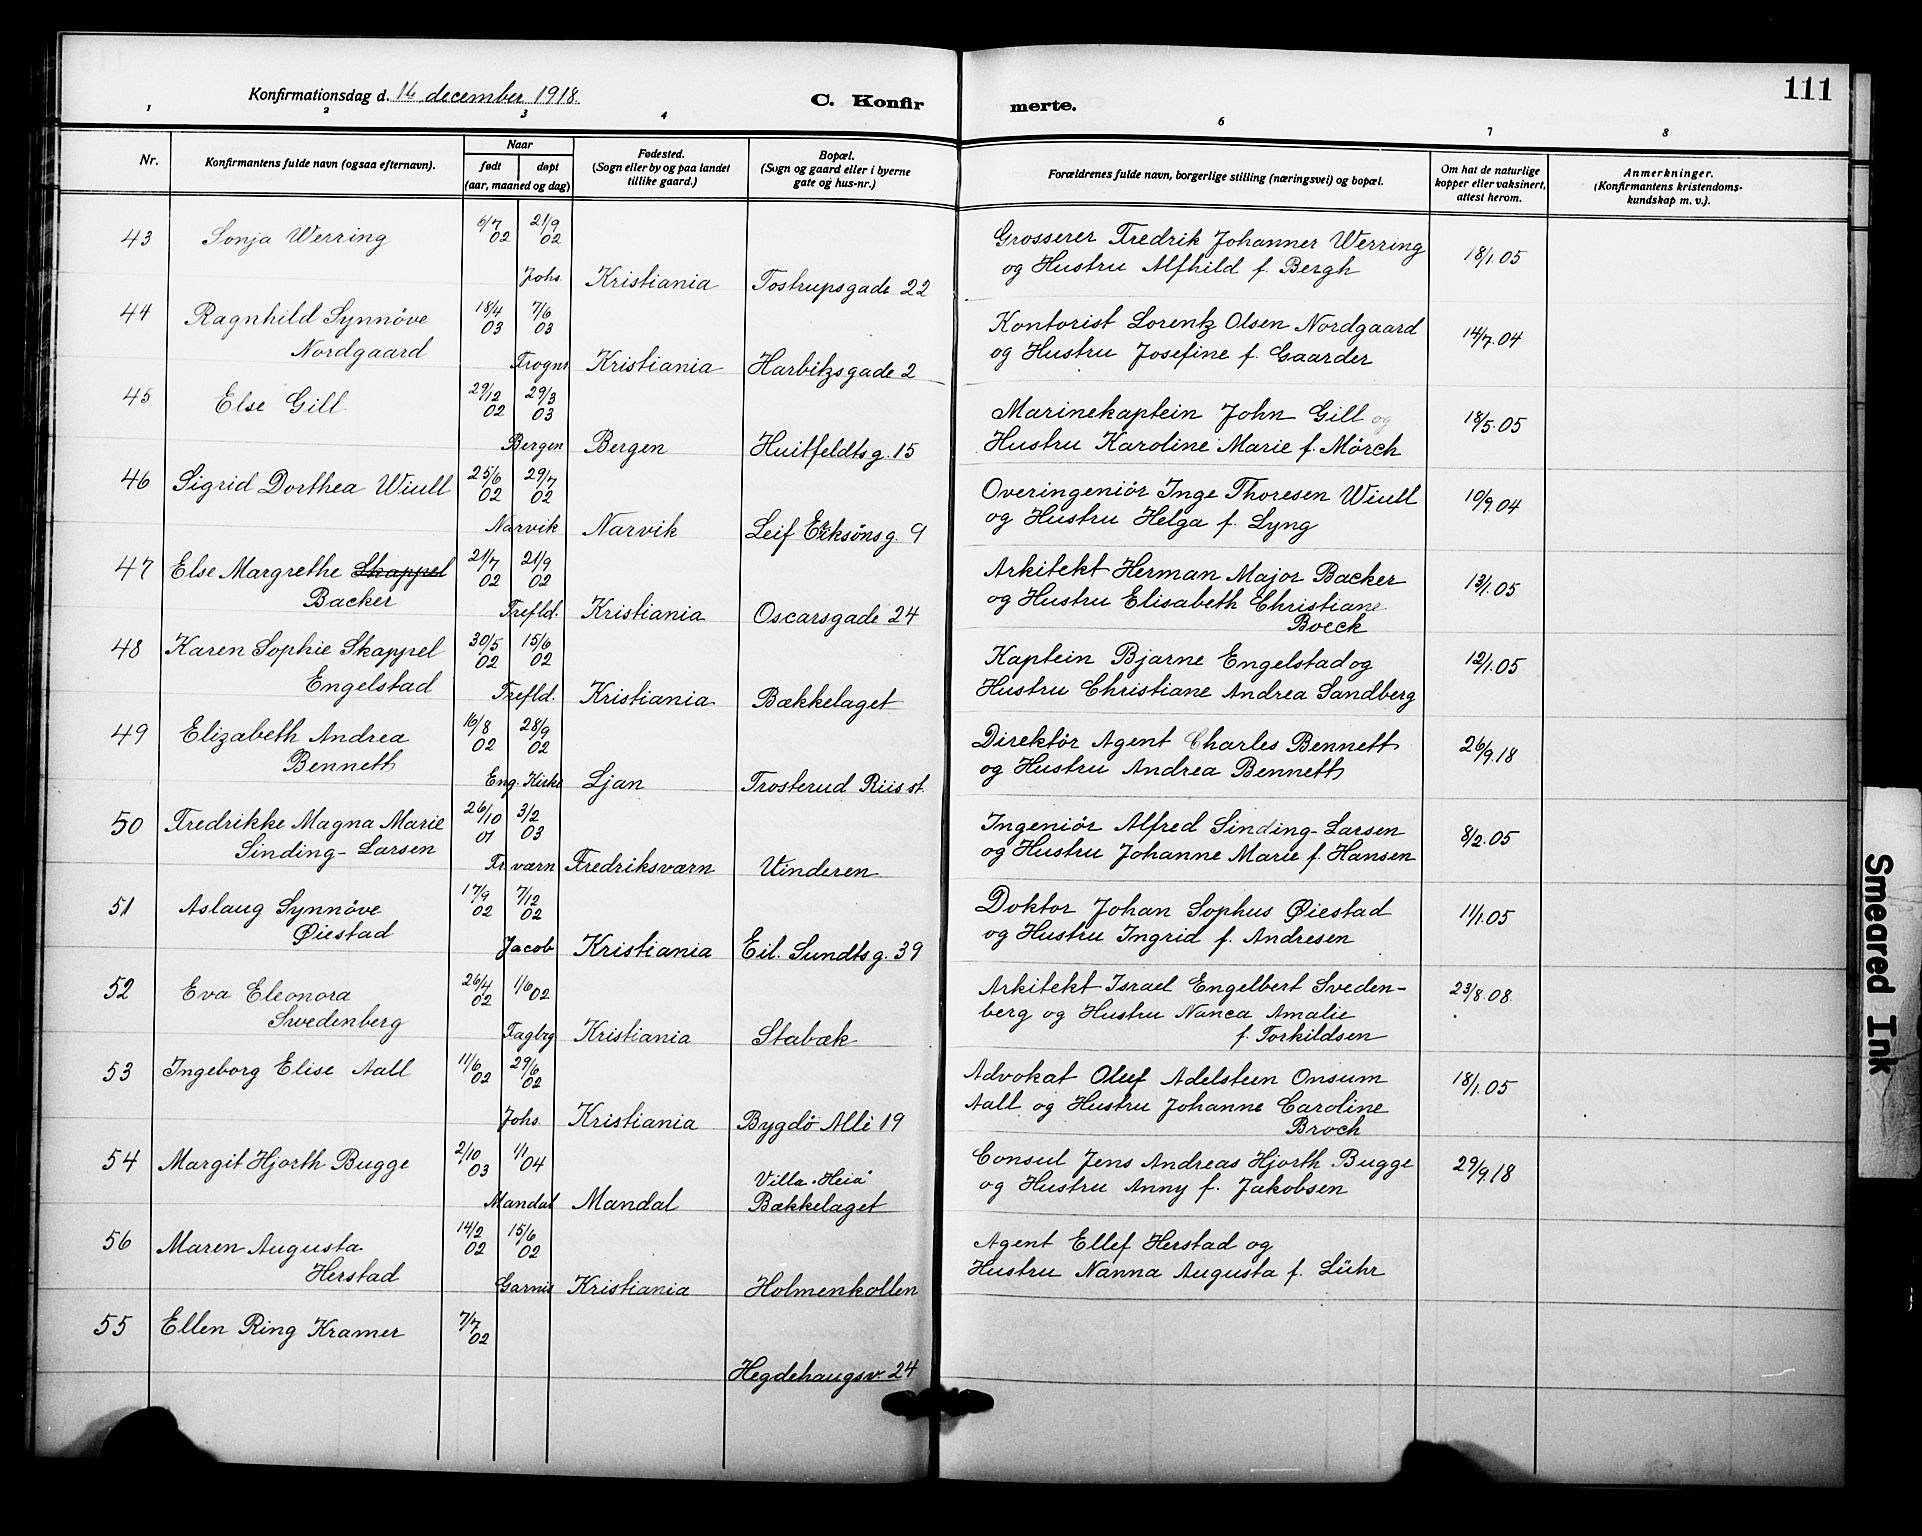 Konfirmationsdag d. 14 december 1918.
C. Konfirmerte.
111
1 2 3 4 6 7 8
Nr.
Konfirmantens fulde navn (ogsaa efternavn).
Naar
født døpt
(aar, maaned og dag)
Fødested.
(Sogn eller by og paa landet
tillike gaard.)
Bopæl.
(Sogn og gaard eller i byerne
gate og hus-nr.)
Forældrenes fulde navn, borgerlige stilling (næringsvei) og bopæl.
Om hat de naturlige
kopper eller vaksinert,
attest herom.
Anmerkninger.
(Konfirmantens kristendoms-
kundskap m. v.).
43 Sonja Werring 6/7 02 21/9 02 Grosserer Fredrik Johannes Werring 18/1.05
Johs. Kristiania Tostrupsgade 22 og Hustru Alfhild f. Bergh
44 Ragnhild Synnöve 18/4 03 7/6 03 Kontorist Lorentz Olsen Nordgaard 14/7.04
Nordgaard Frogns Kristiania Harbitzsgade 2 og Hustru Josefine f. Gaarder
45 Else Gill 29/12 02 29/3 03 Marinekaptein John Gill og 18/5.05
Bergen Bergen Huitfeldtsg. 15 Hustru Karoline Marie f. Mörch
46 Sigrid Dorthea Wiull 25/6 02 29/7 02 Overingeniör Inge Thoresen Wiull 10/9.04
Narvik Narvik Leif Eriksönsg. 9 og Hustru Helga f. Lyng
47 Else Margrethe Skappel 21/7 02 21/9 02 Arkitekt Herman Major Backer 13/1.05
Backer Trefld. Kristiania Oscarsgade 24 og Hustru Elisabeth Christiane
Boeck
48 Karen Sophie Skappel 30/5 02 15/6 02 Kaptein Bjarne Engelstad og 12/1.05
Engelstad Trefld. Kristiania Bækkelaget Hustru Christiane Andrea Sandberg
49 Elizabeth Andrea 16/8 02 28/9 02 Direktör Agent Charles Bennett 26/9.18
Bennett Eng. Kirke Ljan Trosterud Riis st. og Hustru Andrea Bennett
50 Fredrikke Magna Marie 26/10 01 3/2 03 Ingeniör Alfred Sinding-Larsen 8/2.05
Sinding-Larsen Fr.værn Fredriksværn Vinderen og Hustru Johanne Marie f. Hansen
51 Aslaug Synnöve 17/9 02 7/12 02 Doktor Johan Sophus Øiestad 11/1.05
Øiestad Jacob Kristiania Eil. Sundtsg. 39 og Hustru Ingrid f. Andresen
52 Eva Eleonora 26/4 02 1/6 02 Arkitekt Israel Engelbert Sveden- 23/8.08.
Swedenberg Fagbrg Kristiania Stabæk berg og Hustru Nanca Amalie
f. Torkildsen
53 Ingeborg Elise Aall 11/6 02 29/6 02 Advokat Oluf Adelsteen Onsum 18/1.05
Johs. Kristiania Bygdö Allé 19 Aall og Hustru Johanne Caroline
Broch
54 Margit Hjorth Bugge 2/10 03 1/1 04 Villa "Heia" Consul Jens Andreas Hjorth Bugge 29/9.18
Mandal Mandal Bækkelaget og Hustru Anny f. Jakobsen
56 Maren Augusta 14/2 02 15/6 02 Agent Ellef Herstad og
Herstad Garnis Kristiania Holmenkollen Hustru Nanna Augusta f. Lühr
55 Ellen Ring Kramer 7/7 02
Hegdehaugsv. 24
Smeared Ink